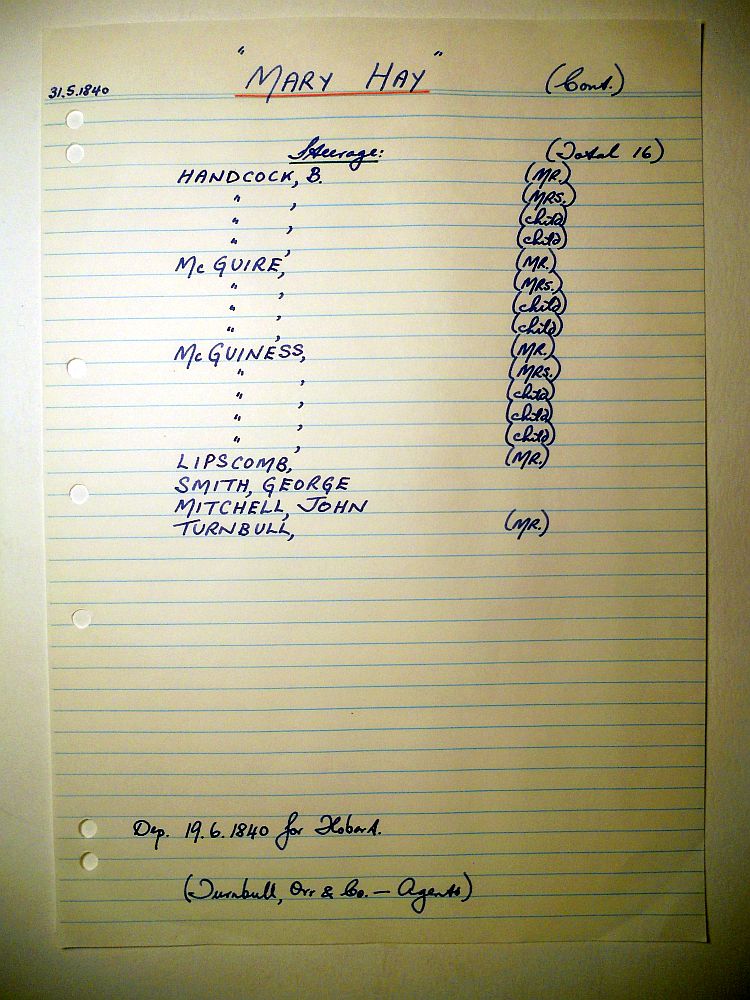 31.5.1840 "MARY HAY" (Cont.)
Steerage: (Total 16)
HANDCOCK, B. (MR.)
" , (MRS.)
" , (child)
" , (child)
McGUIRE, (MR.)
" , (MRS.)
" , (child)
" , (child)
McGUINESS, (MR.)
" , (MRS.)
" , (child)
" , (child)
" , (child)
LIPSCOMB, (MR.)
SMITH, GEORGE
MITCHELL, JOHN
TURNBULL, (MR.)
Dep. 19.6.1840 for Hobart.
(Turnbull, Orr & Co. — Agents)